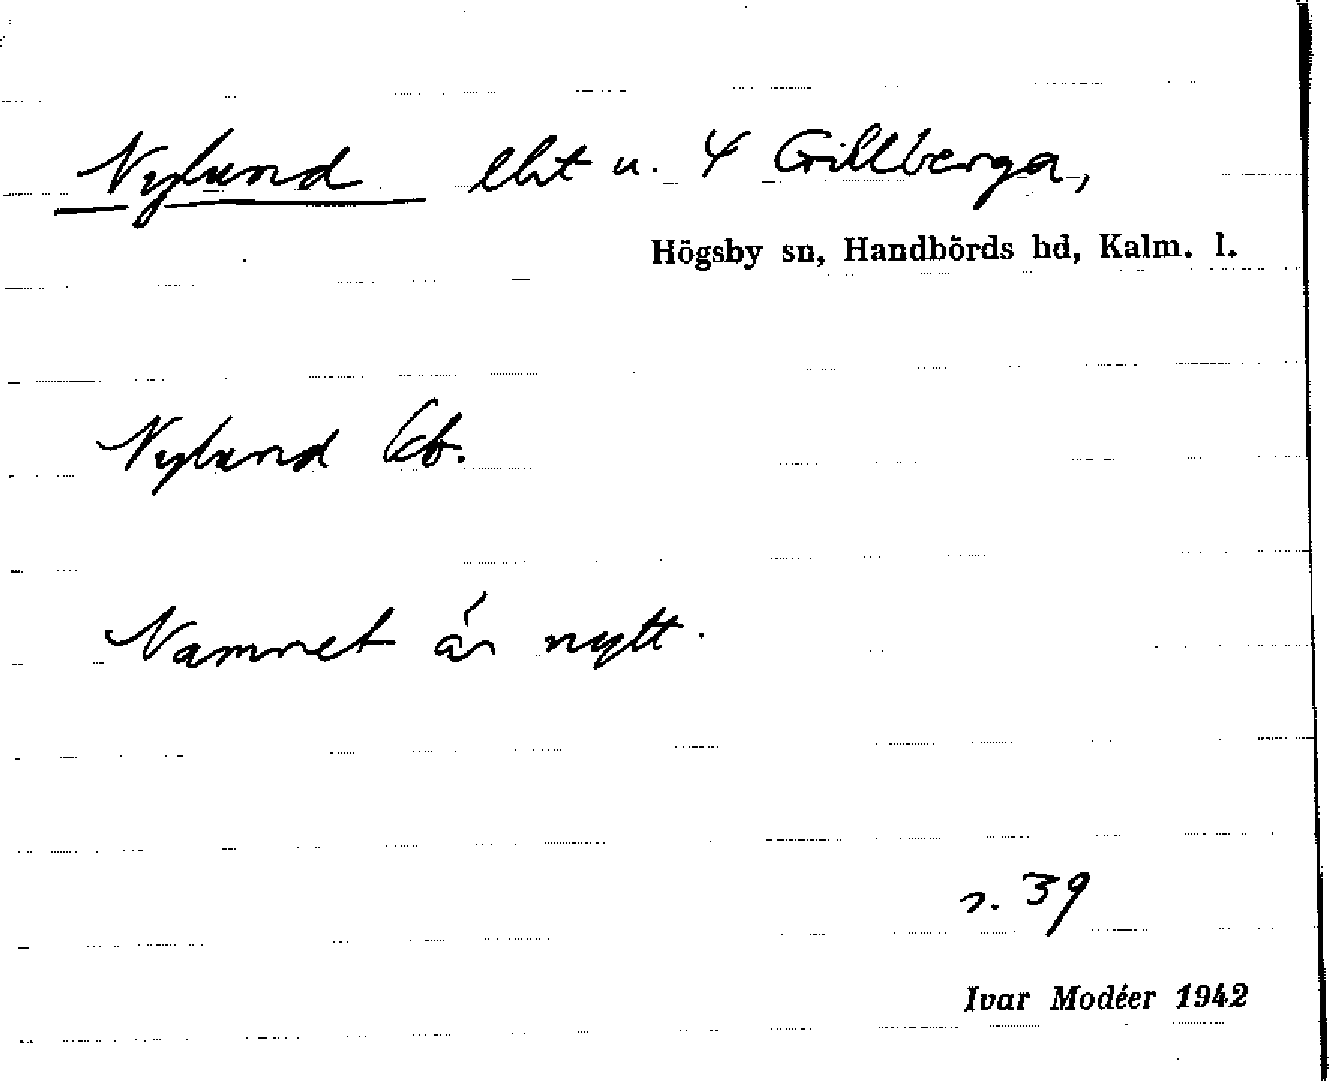 Nylund lht u. 4 Gillberga,
Högsby sn, Handbörds hd, Kalm. l.
Nylund kb.
Namnet är nytt.
s. 39
Ivar Modéer 1942